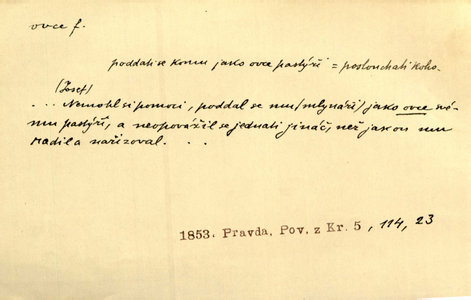 ovce f.
poddati se komu jako ovce pastýři = poslouchati koho.
(Josef)
... Nemohl si pomoci, poddal se mu (mlynáři) jako ovce své-
mu pastýři, a neopovážil se jednati jináč, než jak on mu
radil a nařizoval. . .
1853. Pravda, Pov. z Kr. 5, 114, 23